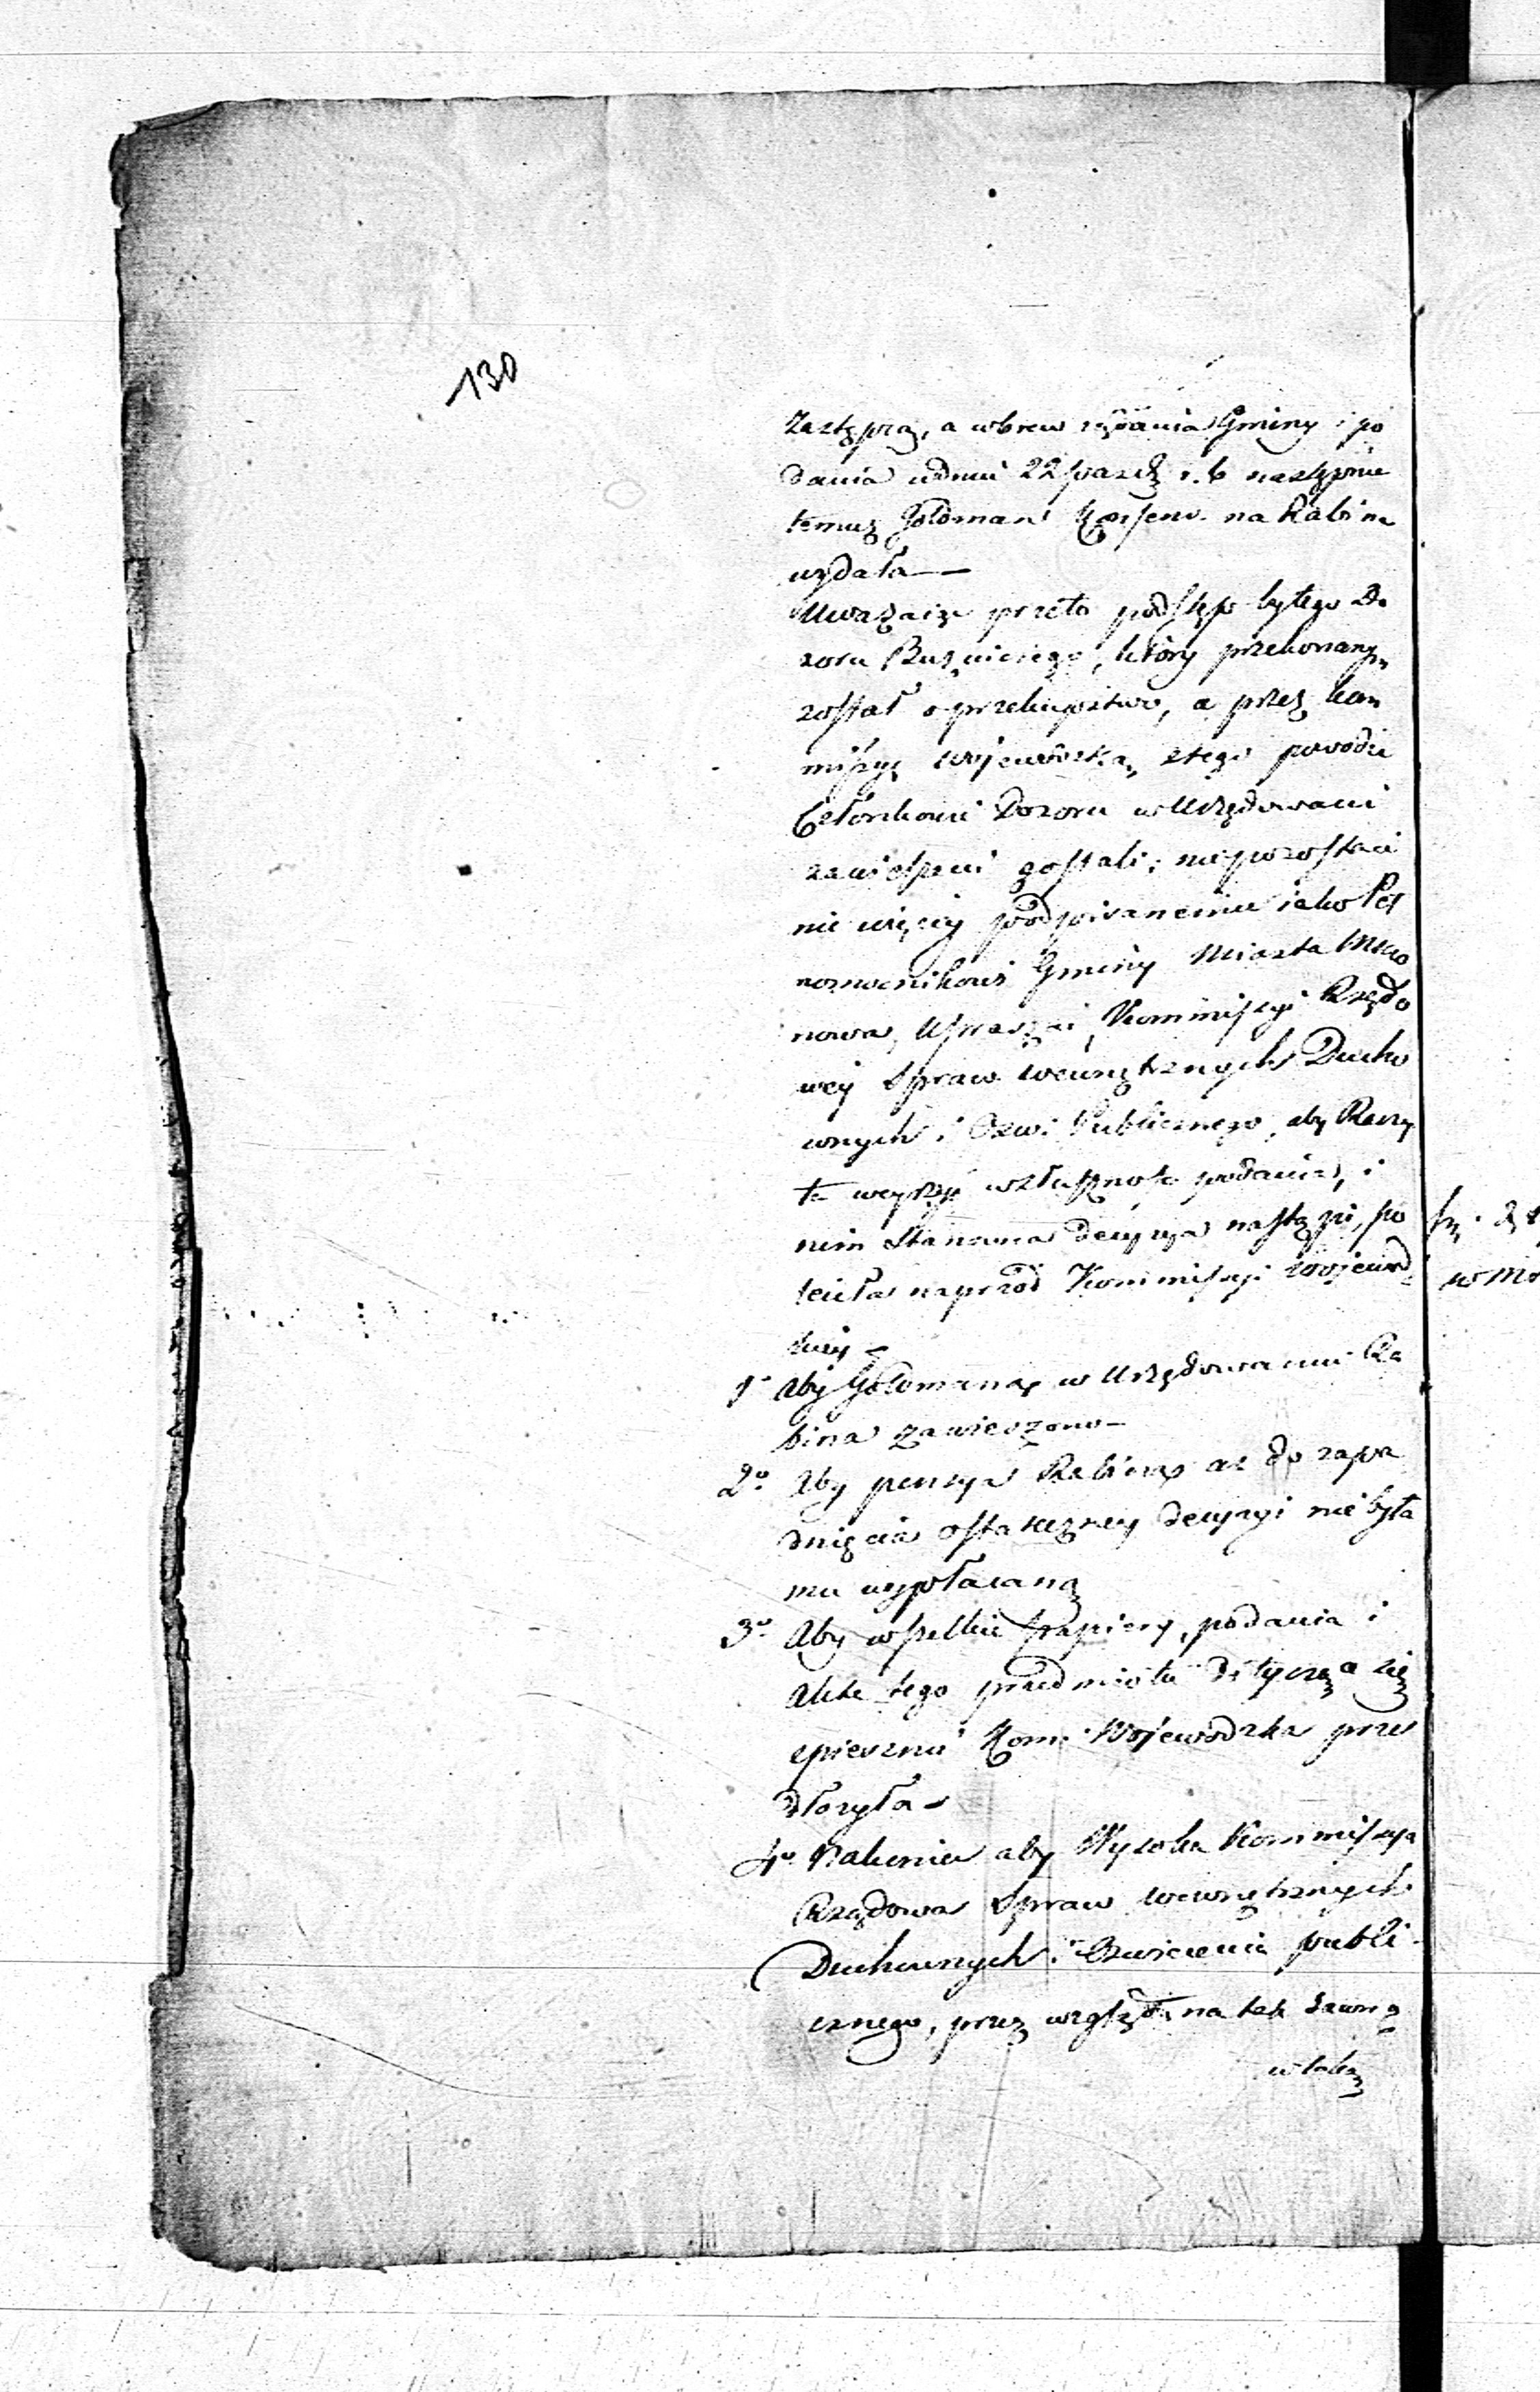 130
zastępcę, a wbrew żądania Gminy i po
dania w dniu 22 paźdz r. b następnie
temuż Goldman Konsens na Rabina
wydała —
Uważaiąc przeto podstęp byłego Do
zoru Bużniczego, który przekonany
został o przekupstwo, a przez kom
missyę Wojewódzką z tego powodu
Członkowie Dozoru w Urzędowaniu
zawieszeni zostali; niepozostaie
nic więcey podpisanemu iako Peł
nomocnikowi Gminy Miasta
nowa, Upraszać Kommissyi Rządo
wey Spraw Wewnętrznych Ducho
wnych i Oświ: Publicznego, aby Raczy
ła weyrzyć w słuszność podania, i
nim stanowcza decyzya nastąpi, po
leciła naprzód Kommissyi Wojewódz
kiey —
1º Aby Goldmana w Urzędowaniu Ra
bina zawieszono —
2º Aby pensya Rabina aż do zapa
dnięcia ostateczney decyzyi nie była
mu wypłacaną
3º Aby wszelkie papiery, podania i
akta tego przedmiotu dotyczące się
spiesznie Kom: Wojewódzka prze
dłożyła —
4º Nakoniec aby Wysoka Kommissya
Rządowa Spraw Wewnętrznych
Duchownych i Oświecenia publi
cznego, przez wzgląd na tak iawną
w taką